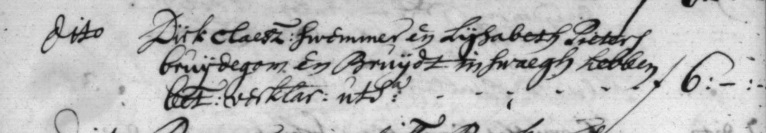 dito Dirk Claesz: Swemmer en Lijsabeth Pieters
bruijdegom en Bruijdt in Swaegh hebben
bet: verklar: uts^a: - - - - - - f 6:-:-